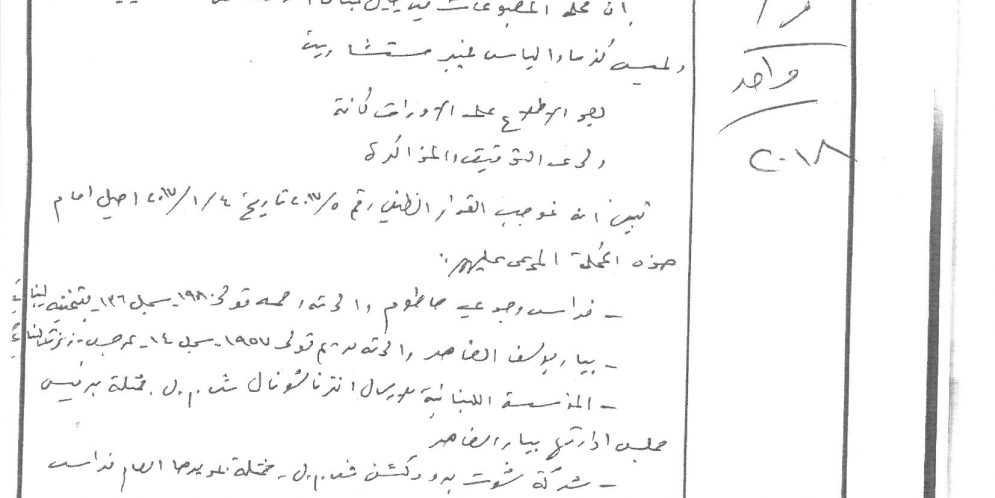 بان محكمة المطبوعات في
ولميس كزما والياس عيد مستشارين
بعد الاطلاع على الاوراق كافة
ولدى التدقيق والمذاكرة
تبين انه بموجب القرار الظني رقم تاريخ ٤/١/ احيل امام
هذه المحكمة المدعى عليهم:
- فراس وجوعي حاطوم والدته تولد ١٩٨٠ سجل ١٣٦ لبناني
- بيار يوسف الضاهر والدته مريم تولد ١٩٥٧ سجل ١٤ لبناني
- المؤسسة اللبنانية للارسال انترناسيونال ش.م.ل. ممثلة برئيس
مجلس ادارتها بيار الضاهر
- شركة شوت برودكشن ش.م.ل. ممثلة بمديرها العام فراس
واحد
٢٠١٨